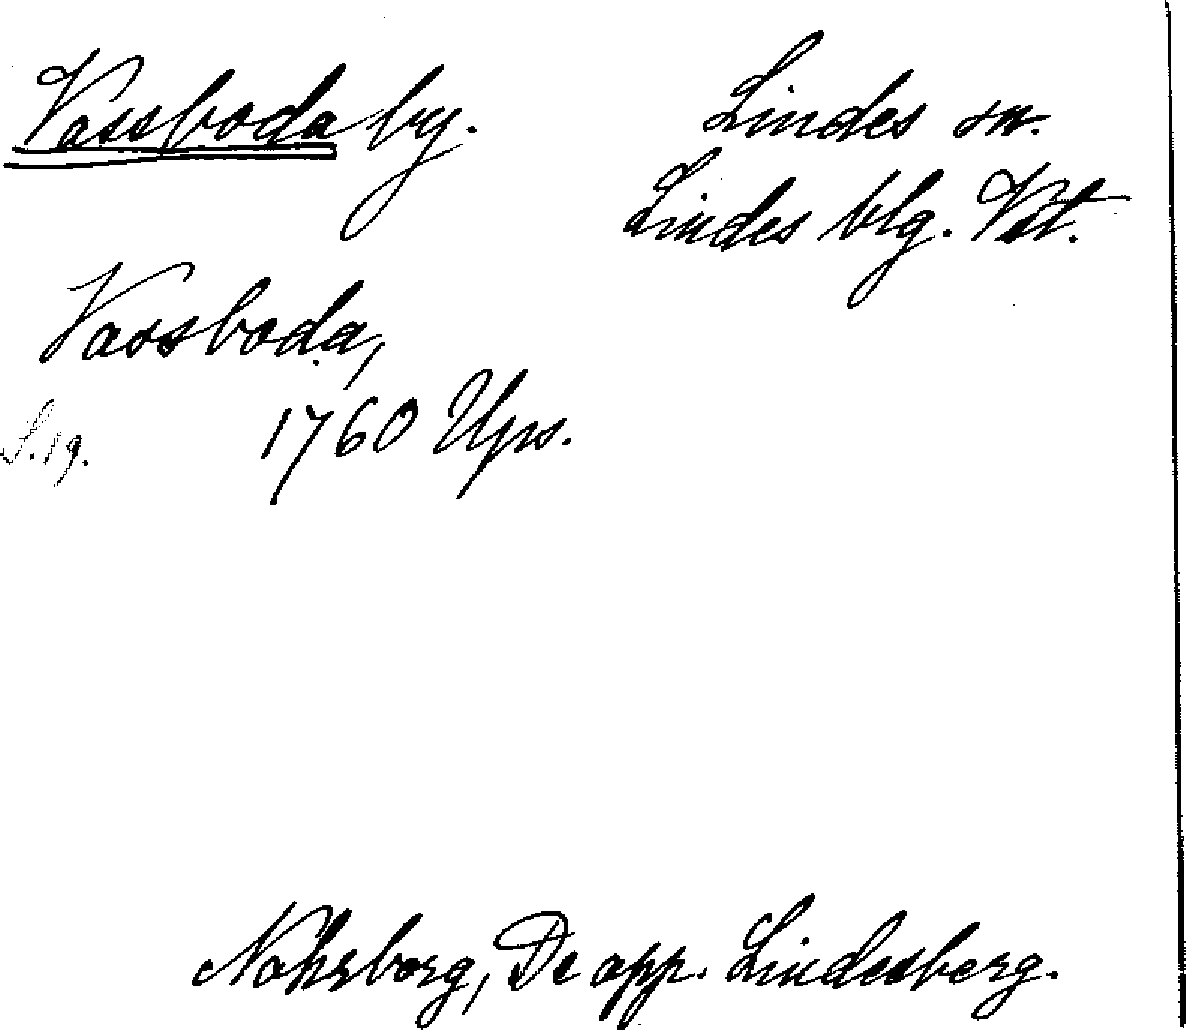 Vassboda by.
Lindes sn.
Lindes blg. Vstm.
Vassboda,
S. 19. 1760 Ups.
Nohrborg, De opp. Lindesberg.